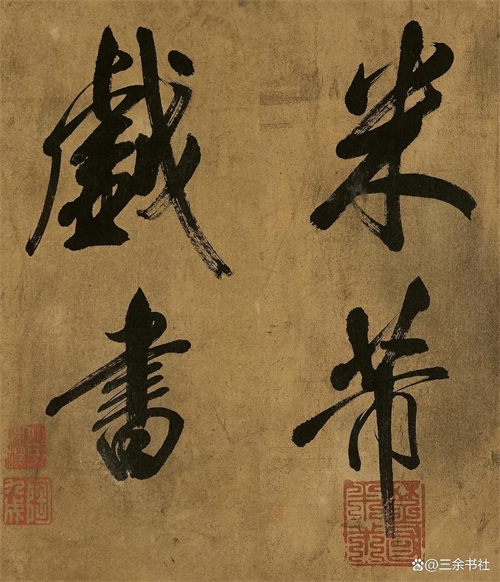 米芾
戲書
@三余书社